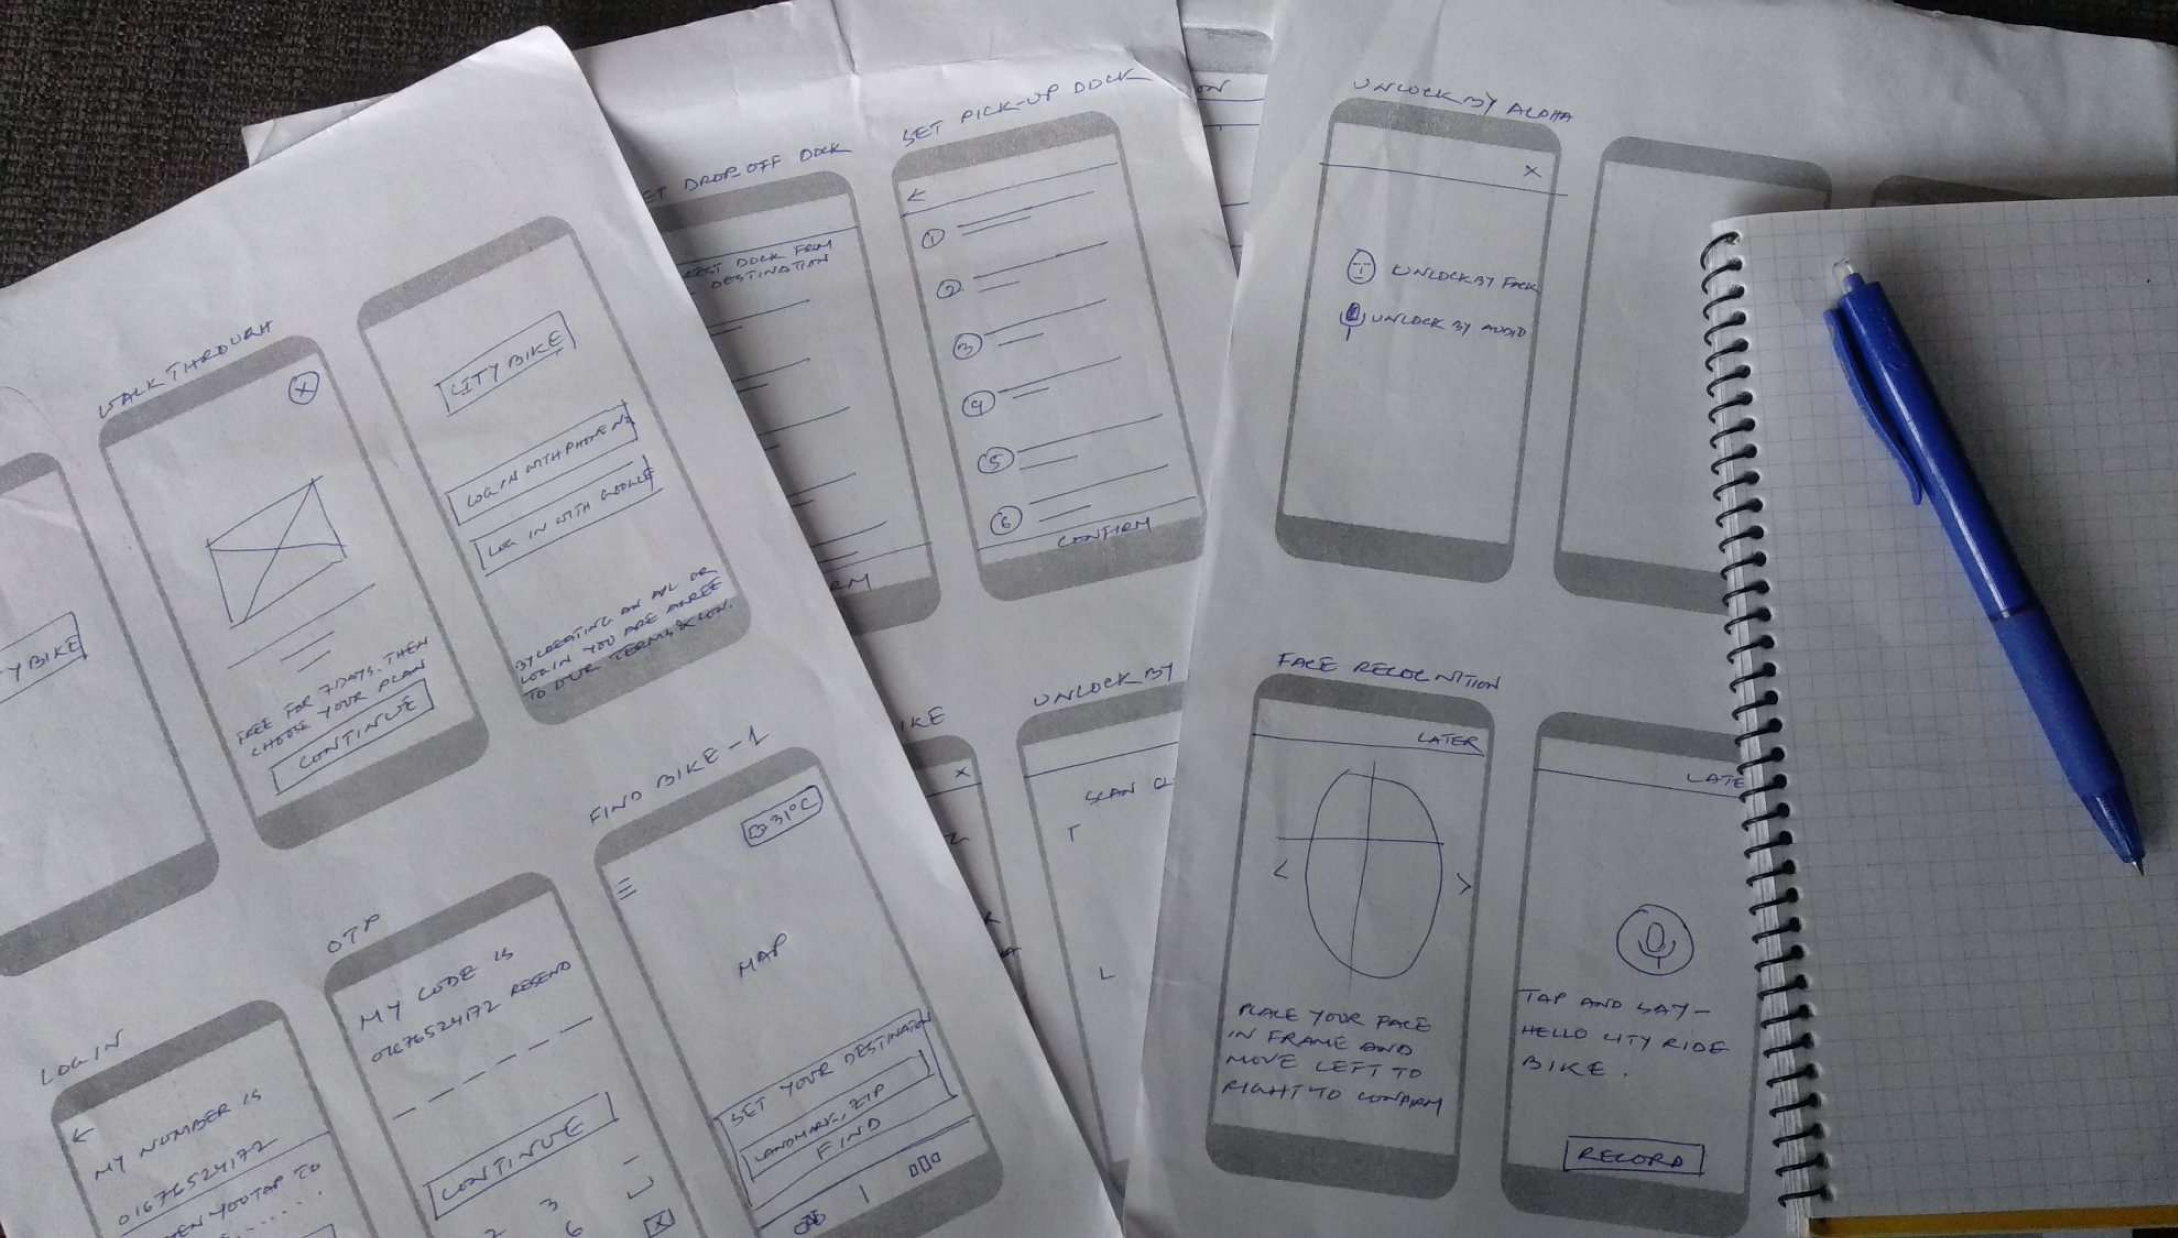 WALK THROUGH
X
FREE FOR 7 DAYS. THEN
CHOOSE YOUR PLAN
CONTINUE
CITY BIKE
LOG IN WITH PHONE
LOG IN WITH GOOGLE
BY CREATING AN OR
LOGIN YOU ARE AGREE
TO OUR TERMS & CON.
Y BIKE
LOGIN
MY NUMBER IS
01676524172
YOU TAP TO
OTP
MY CODE IS
01676524172 RESEND
CONTINUE
2 3
6
X
FIND BIKE-1
31°C
MAP
SET YOUR DESTINATION
LANDMARK, ZIP
FIND
ET DROP-OFF DOCK
EST DOCK FROM
DESTINATION
RM
SET PICK-UP DOCK
1
2
3
4
5
6
CONFIRM
ON
IKE
X
UNLOCK BY
SCAN
UNLOCK BY ALPHA
X
UNLOCK BY FACE
UNLOCK BY AUDIO
FACE RECOGNITION
LATER
PLACE YOUR FACE
IN FRAME AND
MOVE LEFT TO
RIGHT TO CONFIRM
LATE
TAP AND SAY-
HELLO CITY RIDE
BIKE.
RECORD